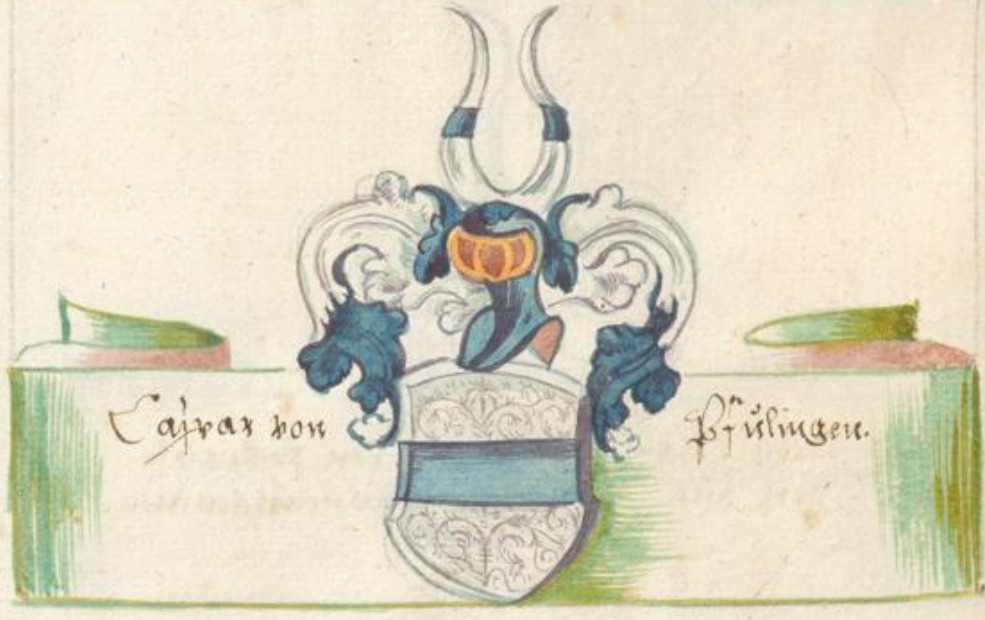 Caspar von Pfulingen.